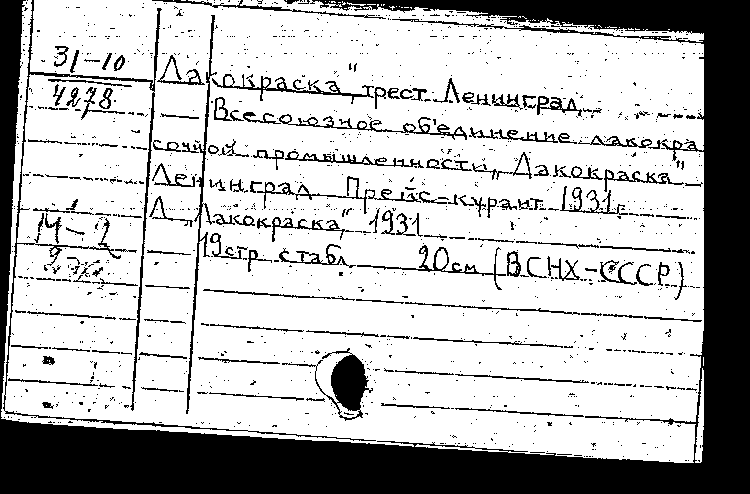 31-10
4278
Лакокраска", трест. Ленинград
Всесоюзное об'единение лакокра
сочной промышленности „Лакокраска"
Ленинград Прейс-курант 1931г.
Л „Лакокраска", 1931
19стр с табл 20см (ВСНХ-СССР)
М-2